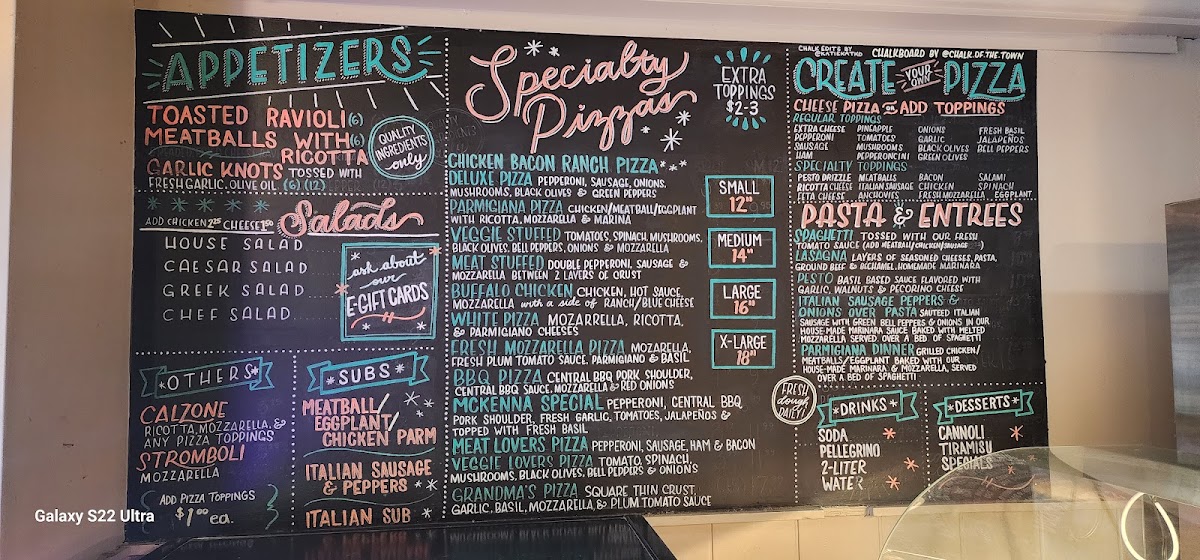 APPETIZERS
TOASTED RAVIOLI (6)
MEATBALLS WITH (6)
RICOTTA
GARLIC KNOTS TOSSED WITH
FRESH GARLIC, OLIVE OIL (6) (12)
QUALITY
INGREDIENTS
only
ADD CHICKEN 2.25 CHEESE 1.00
Salads
HOUSE SALAD
CAESAR SALAD
GREEK SALAD
CHEF SALAD
ask about
our
E-GIFT CARDS
OTHERS
CALZONE
RICOTTA, MOZZARELLA, &
ANY PIZZA TOPPINGS
STROMBOLI
MOZZARELLA
ADD PIZZA TOPPINGS
$1.00 ea.
SUBS
MEATBALL/
EGGPLANT/
CHICKEN PARM
ITALIAN SAUSAGE
& PEPPERS
ITALIAN SUB
Specialty
Pizzas
EXTRA
TOPPINGS
$2-3
CHICKEN BACON RANCH PIZZA
DELUXE PIZZA PEPPERONI, SAUSAGE, ONIONS,
MUSHROOMS, BLACK OLIVES & GREEN PEPPERS
PARMIGIANA PIZZA CHICKEN/MEATBALL/EGGPLANT
WITH RICOTTA, MOZZARELLA & MARINA
VEGGIE STUFFED TOMATOES, SPINACH, MUSHROOMS,
BLACK OLIVES, BELL PEPPERS, ONIONS & MOZZARELLA
MEAT STUFFED DOUBLE PEPPERONI, SAUSAGE &
MOZZARELLA BETWEEN 2 LAYERS OF CRUST
BUFFALO CHICKEN CHICKEN, HOT SAUCE,
MOZZARELLA with a side of RANCH/BLUE CHEESE
WHITE PIZZA MOZARRELLA, RICOTTA,
& PARMIGIANO CHEESES
FRESH MOZZARELLA PIZZA MOZARELLA,
FRESH PLUM TOMATO SAUCE, PARMIGIANO & BASIL
BBQ PIZZA CENTRAL BBQ PORK SHOULDER,
CENTRAL BBQ SAUCE, MOZZARELLA & RED ONIONS
MCKENNA SPECIAL PEPPERONI, CENTRAL BBQ
PORK SHOULDER, FRESH GARLIC, TOMATOES, JALAPEÑOS &
TOPPED WITH FRESH BASIL
MEAT LOVERS PIZZA PEPPERONI, SAUSAGE, HAM & BACON
VEGGIE LOVERS PIZZA TOMATO, SPINACH,
MUSHROOMS, BLACK OLIVES, BELL PEPPERS & ONIONS
GRANDMA'S PIZZA SQUARE THIN CRUST,
GARLIC, BASIL, MOZZARELLA, & PLUM TOMATO SAUCE
SMALL
12"
MEDIUM
14"
LARGE
16"
X-LARGE
18"
FRESH
dough
DAILY!
CHALK EDITS BY
@KATIEKATKD
CHALKBOARD BY @CHALK.OF.THE.TOWN
CREATE YOUR OWN PIZZA
CHEESE PIZZA OR ADD TOPPINGS
REGULAR TOPPINGS
EXTRA CHEESE PINEAPPLE ONIONS FRESH BASIL
PEPPERONI TOMATOES GARLIC JALAPEÑOS
SAUSAGE MUSHROOMS BLACK OLIVES BELL PEPPERS
HAM PEPPERONCINI GREEN OLIVES
SPECIALTY TOPPINGS
PESTO DRIZZLE MEATBALLS BACON SALAMI
RICOTTA CHEESE ITALIAN SAUSAGE CHICKEN SPINACH
FETA CHEESE ANCHOVIES FRESH MOZZARELLA EGGPLANT
PASTA & ENTREES
SPAGHETTI TOSSED WITH OUR FRESH
TOMATO SAUCE (ADD MEATBALL/CHICKEN/SAUSAGE)
LASAGNA LAYERS OF SEASONED CHEESES, PASTA,
GROUND BEEF & BECHAMEL, HOMEMADE MARINARA
PESTO BASIL BASED SAUCE FLAVORED WITH
GARLIC, WALNUTS & PECORINO CHEESE
ITALIAN SAUSAGE PEPPERS &
ONIONS OVER PASTA SAUTEED ITALIAN
SAUSAGE WITH GREEN BELL PEPPERS & ONIONS IN OUR
HOUSE-MADE MARINARA SAUCE BAKED WITH MELTED
MOZZARELLA SERVED OVER A BED OF SPAGHETTI
PARMIGIANA DINNER GRILLED CHICKEN/
MEATBALLS/EGGPLANT BAKED WITH OUR
HOUSE-MADE MARINARA & MOZZARELLA, SERVED
OVER A BED OF SPAGHETTI
DRINKS
SODA
PELLEGRINO
2-LITER
WATER
DESSERTS
CANNOLI
TIRAMISU
SPECIALS
Galaxy S22 Ultra